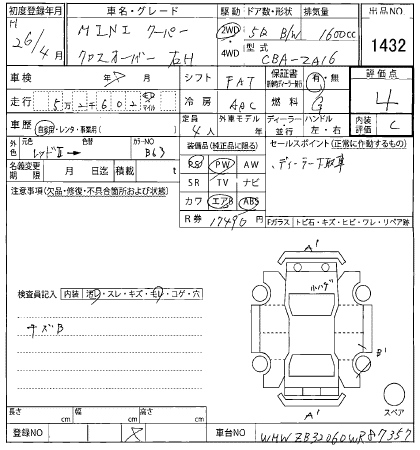 初度登録年月
H
26/4月
車名・グレード
MINI クーパー
クロスオーバー 右H
駆動
2WD
4WD
ドア数・形状
5D B/W
排気量
1600cc
型式
CBA-ZA16
出品NO
1432
車検
年
月
シフト
FAT
保証書
有・無
評価点
4
走行
5万2千602
マイル
冷房
AAC
燃料
G
車歴
自家用・レンタ・事業用( )
定員
4人
外車モデル
年
ディーラー
並行
ハンドル
左・右
内装評価
C
外色
元色
レッドII
色替
カラーNO
B63
装備品(純正品に限る)
PS PW AW
SR TV ナビ
カワ エアB ABS
セールスポイント(正常に作動するもの)
・ディーラー下取車
名義変更期限
月 日迄
積載
t
注意事項(欠品・修復・不具合箇所および状態)
R券
17490円
Fガラス
トビ石・キズ・ヒビ・ワレ・リペア跡
A'
小ハゲ
検査員記入
内装
汚レ・スレ・キズ・モレ・コゲ・穴
キズB
B'
A'
スペア
長さ
cm
幅
cm
高さ
cm
登録NO
車台NO
WMWZB32060WR87357